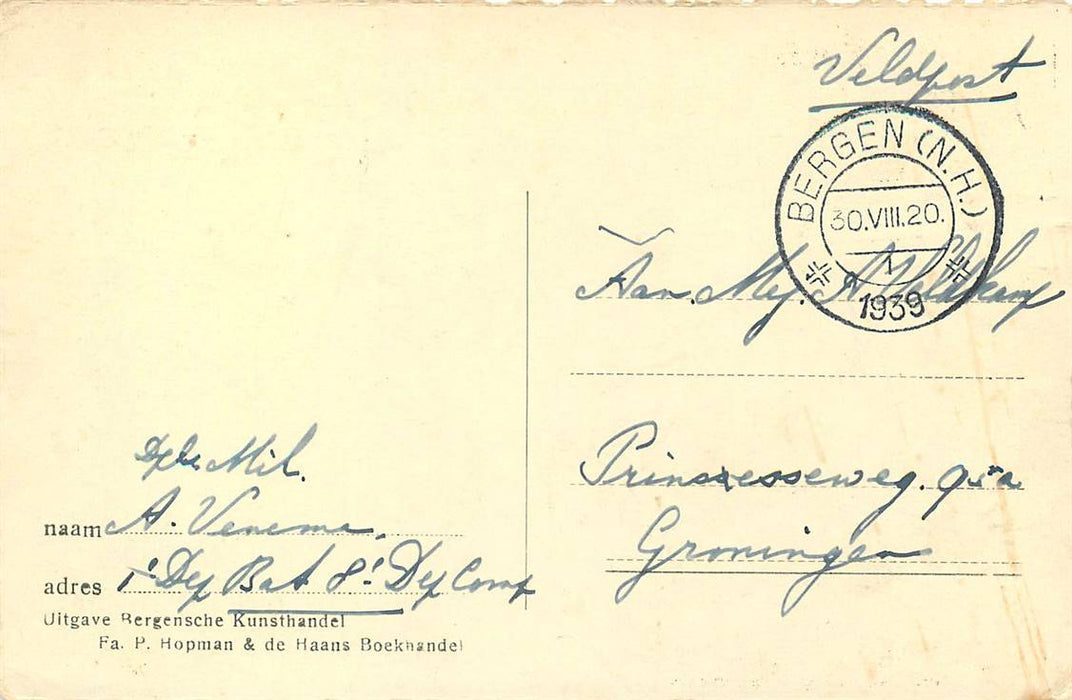 Veldpost
BERGEN (N.H.)
30.VIII.20.
1
1939
Aan. Mej. A Veldkamp
Prinsesseweg. 95a
Groningen
Mil.
naam A. Venema,
adres 1e Dep Bat 8e Dep Comp
Uitgave Bergensche Kunsthandel
Fa. P. Hopman & de Haans Boekhandel